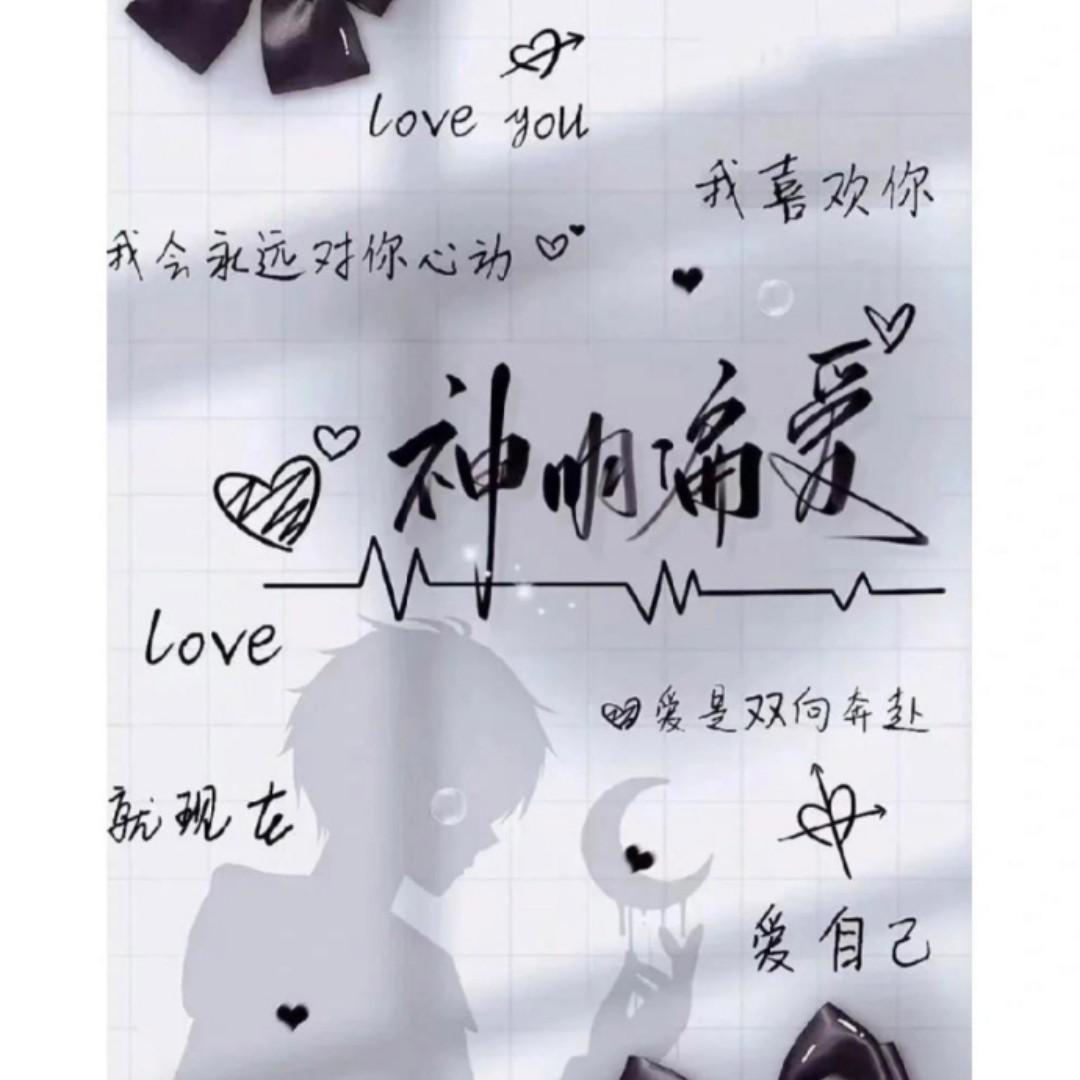 love you
我喜欢你
我会永远对你心动
神明偏爱
love
爱是双向奔赴
就现在
爱自己